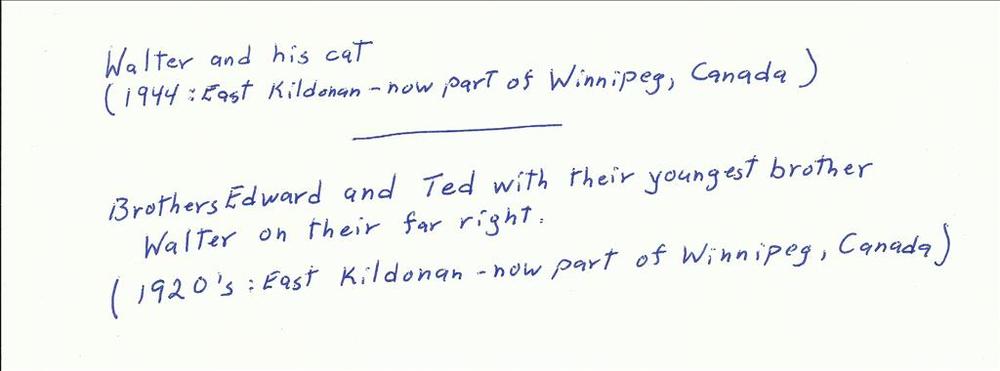 Walter and his cat
(1944: East Kildonan - now part of Winnipeg, Canada)
Brothers Edward and Ted with their youngest brother
Walter on their far right.
(1920's: East Kildonan - now part of Winnipeg, Canada)